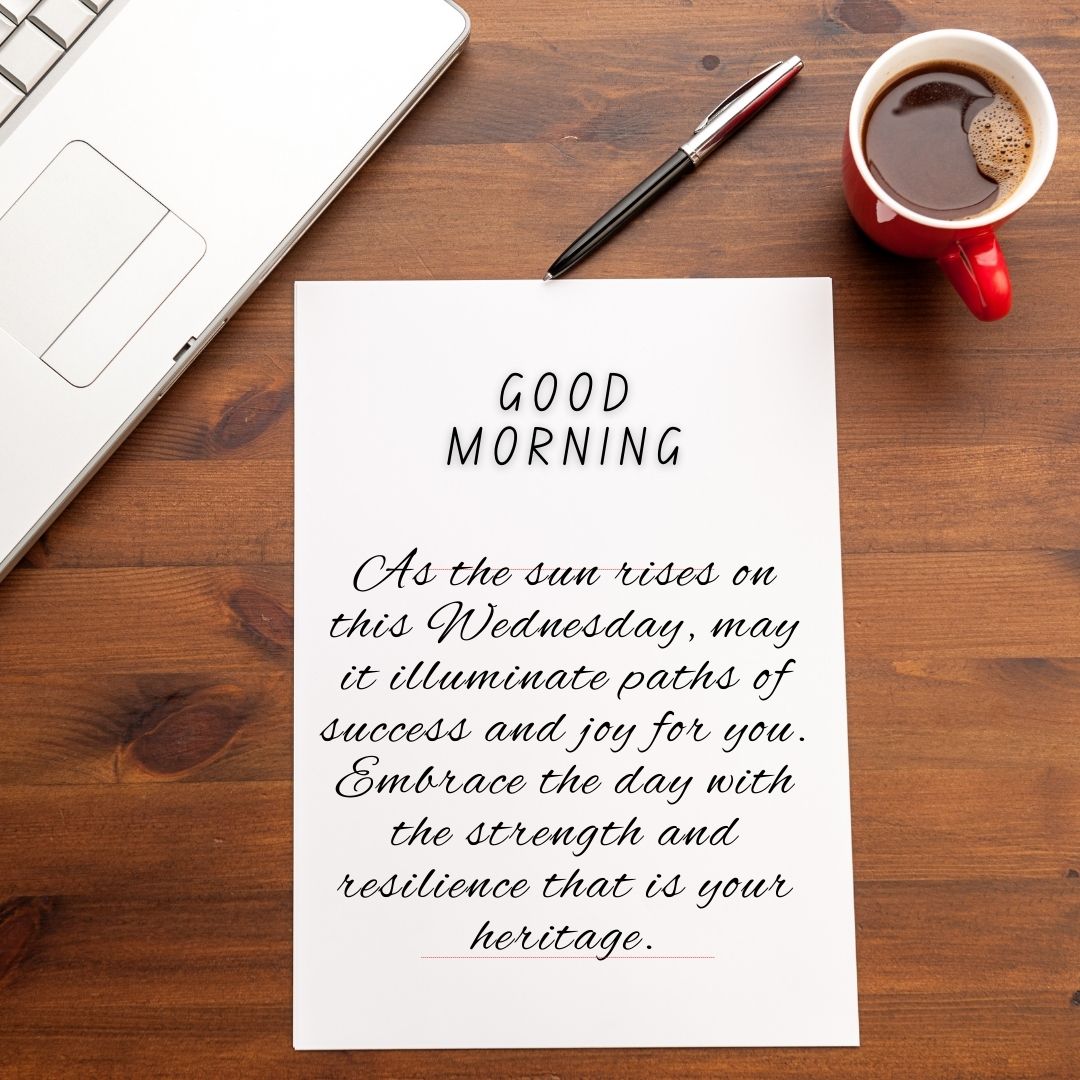 GOOD
MORNING
As the sun rises on
this Wednesday, may
it illuminate paths of
success and joy for you.
Embrace the day with
the strength and
resilience that is your
heritage.